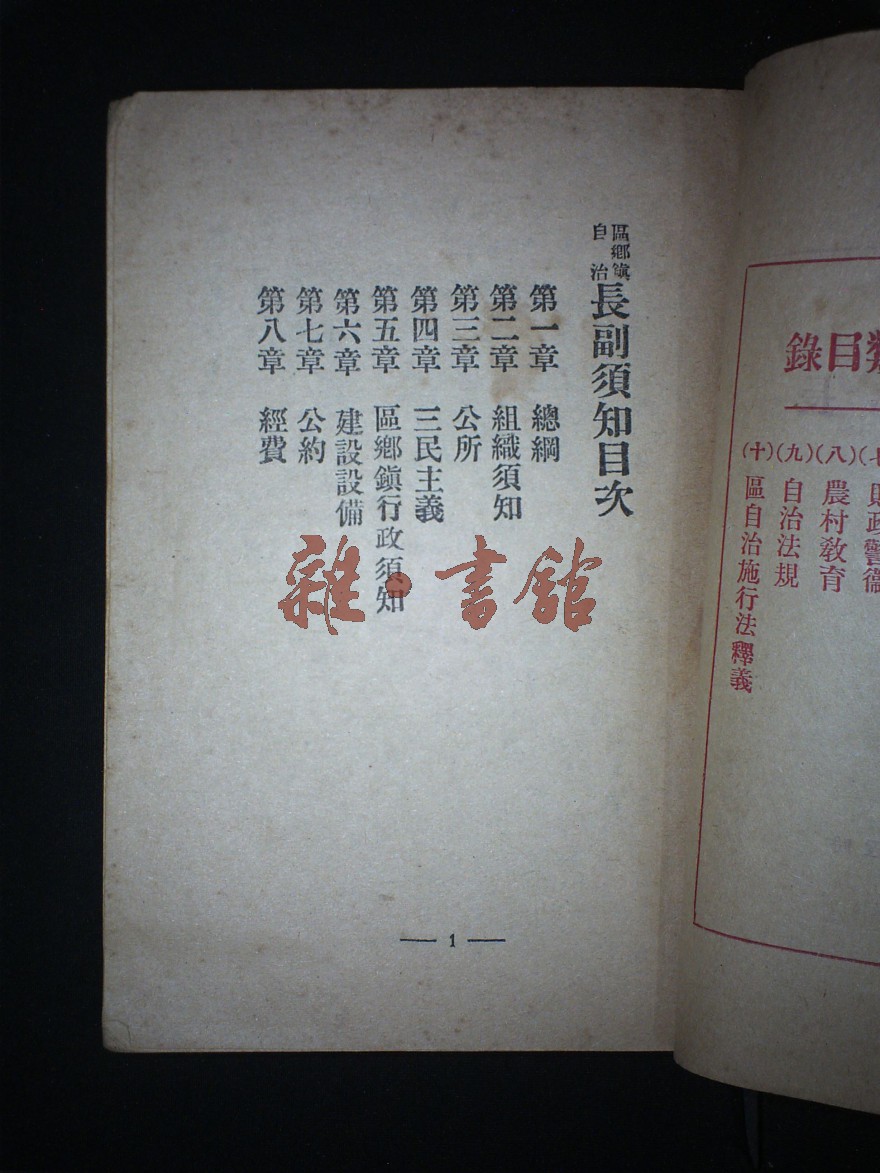 區鄉鎮
自治
長副須知目次
第一章 總綱
第二章 組織須知
第三章 公所
第四章 三民主義
第五章 區鄉鎮行政須知
第六章 建設設備
第七章 公約
第八章 經費
1
雜·書館
類目錄
(八)農村教育
(九)自治法規
(十)區自治施行法釋義